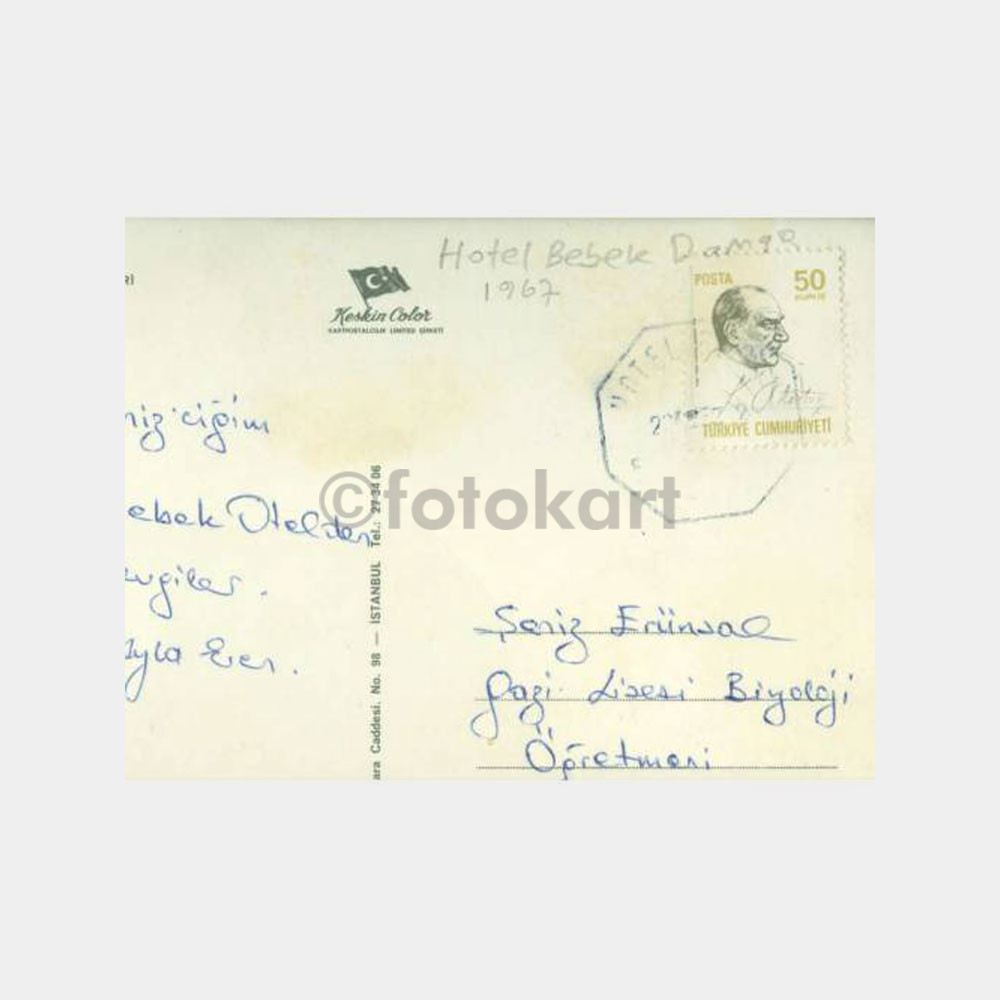 Hotel Bebek Damga
1967
RI
Keskin Color
KARTPOSTALCILIK LIMITED ŞİRKETİ
POSTA 50
KURUŞ
TÜRKİYE CUMHURİYETİ
HOTEL
niz'ciğim
ebek Otelden
vgiler.
Eren.
ara Caddesi. No. 98 — İSTANBUL Tel.: 27 34 06
©fotokart
Şeniz Erünsal
Gazi Lisesi Biyoloji
Öğretmeni